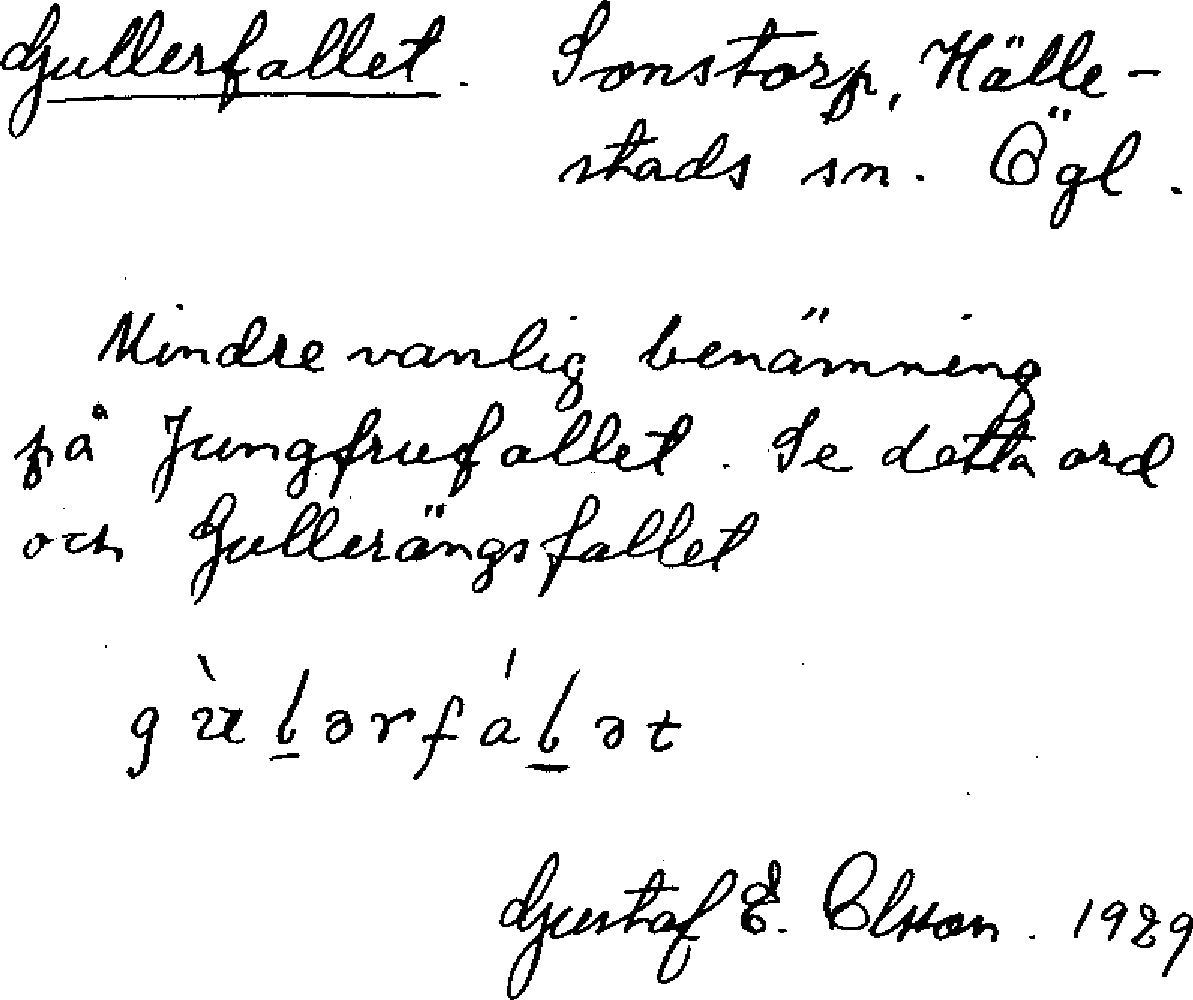 Gullerfallet. Sonstorp, Hälle-
stads sn. Ögl.
Mindre vanlig benämning
på Jungfrufallet. Se detta ord
och Gullerängsfallet
Gustaf E. Olsson. 1929